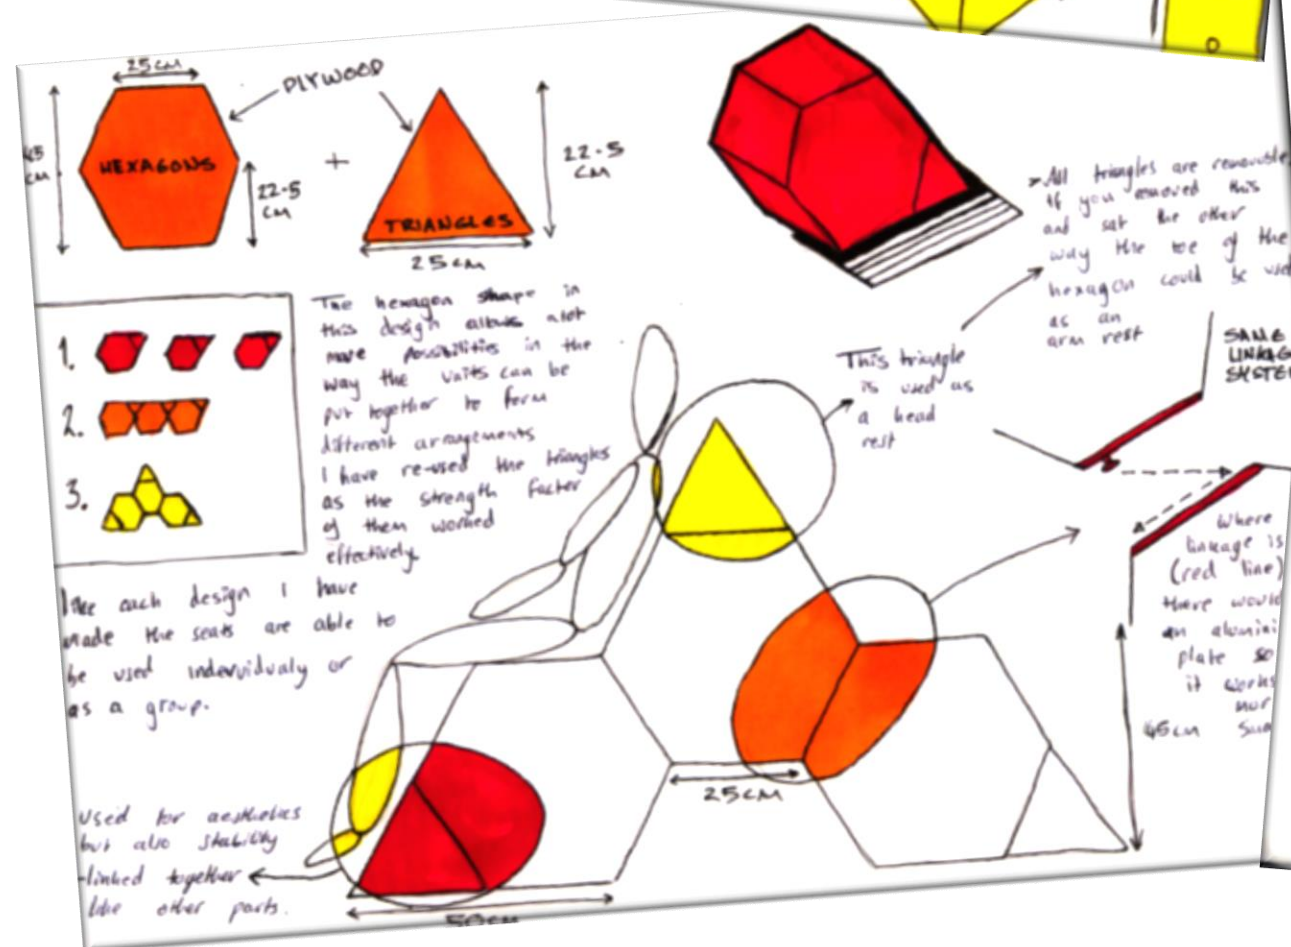 25cm
PLYWOOD
HEXAGONS
45
cm
22-5
cm
+
TRIANGLES
22-5
cm
25cm
1.
2.
3.
The hexagon shape in
this design allows alot
more possibilities in the
way the units can be
put together to form
different arrangements
I have re-used the triangles
as the strength factor
of them worked
effectively.
like each design I have
made the seats are able to
be used indervidualy or
as a group.
Used for aesthetics
but also stability
-linked together
like other parts.
50cm
25cm
This triangle
is used as
a head
rest
All triangles are removable
if you removed this
and sat the other
way the toe of the
hexagon could be
as an
arm rest
SAME
LINKAG
SYSTE
Where
linkage is
(red line)
there would
an alumini
plate so
it works
mor
45cm